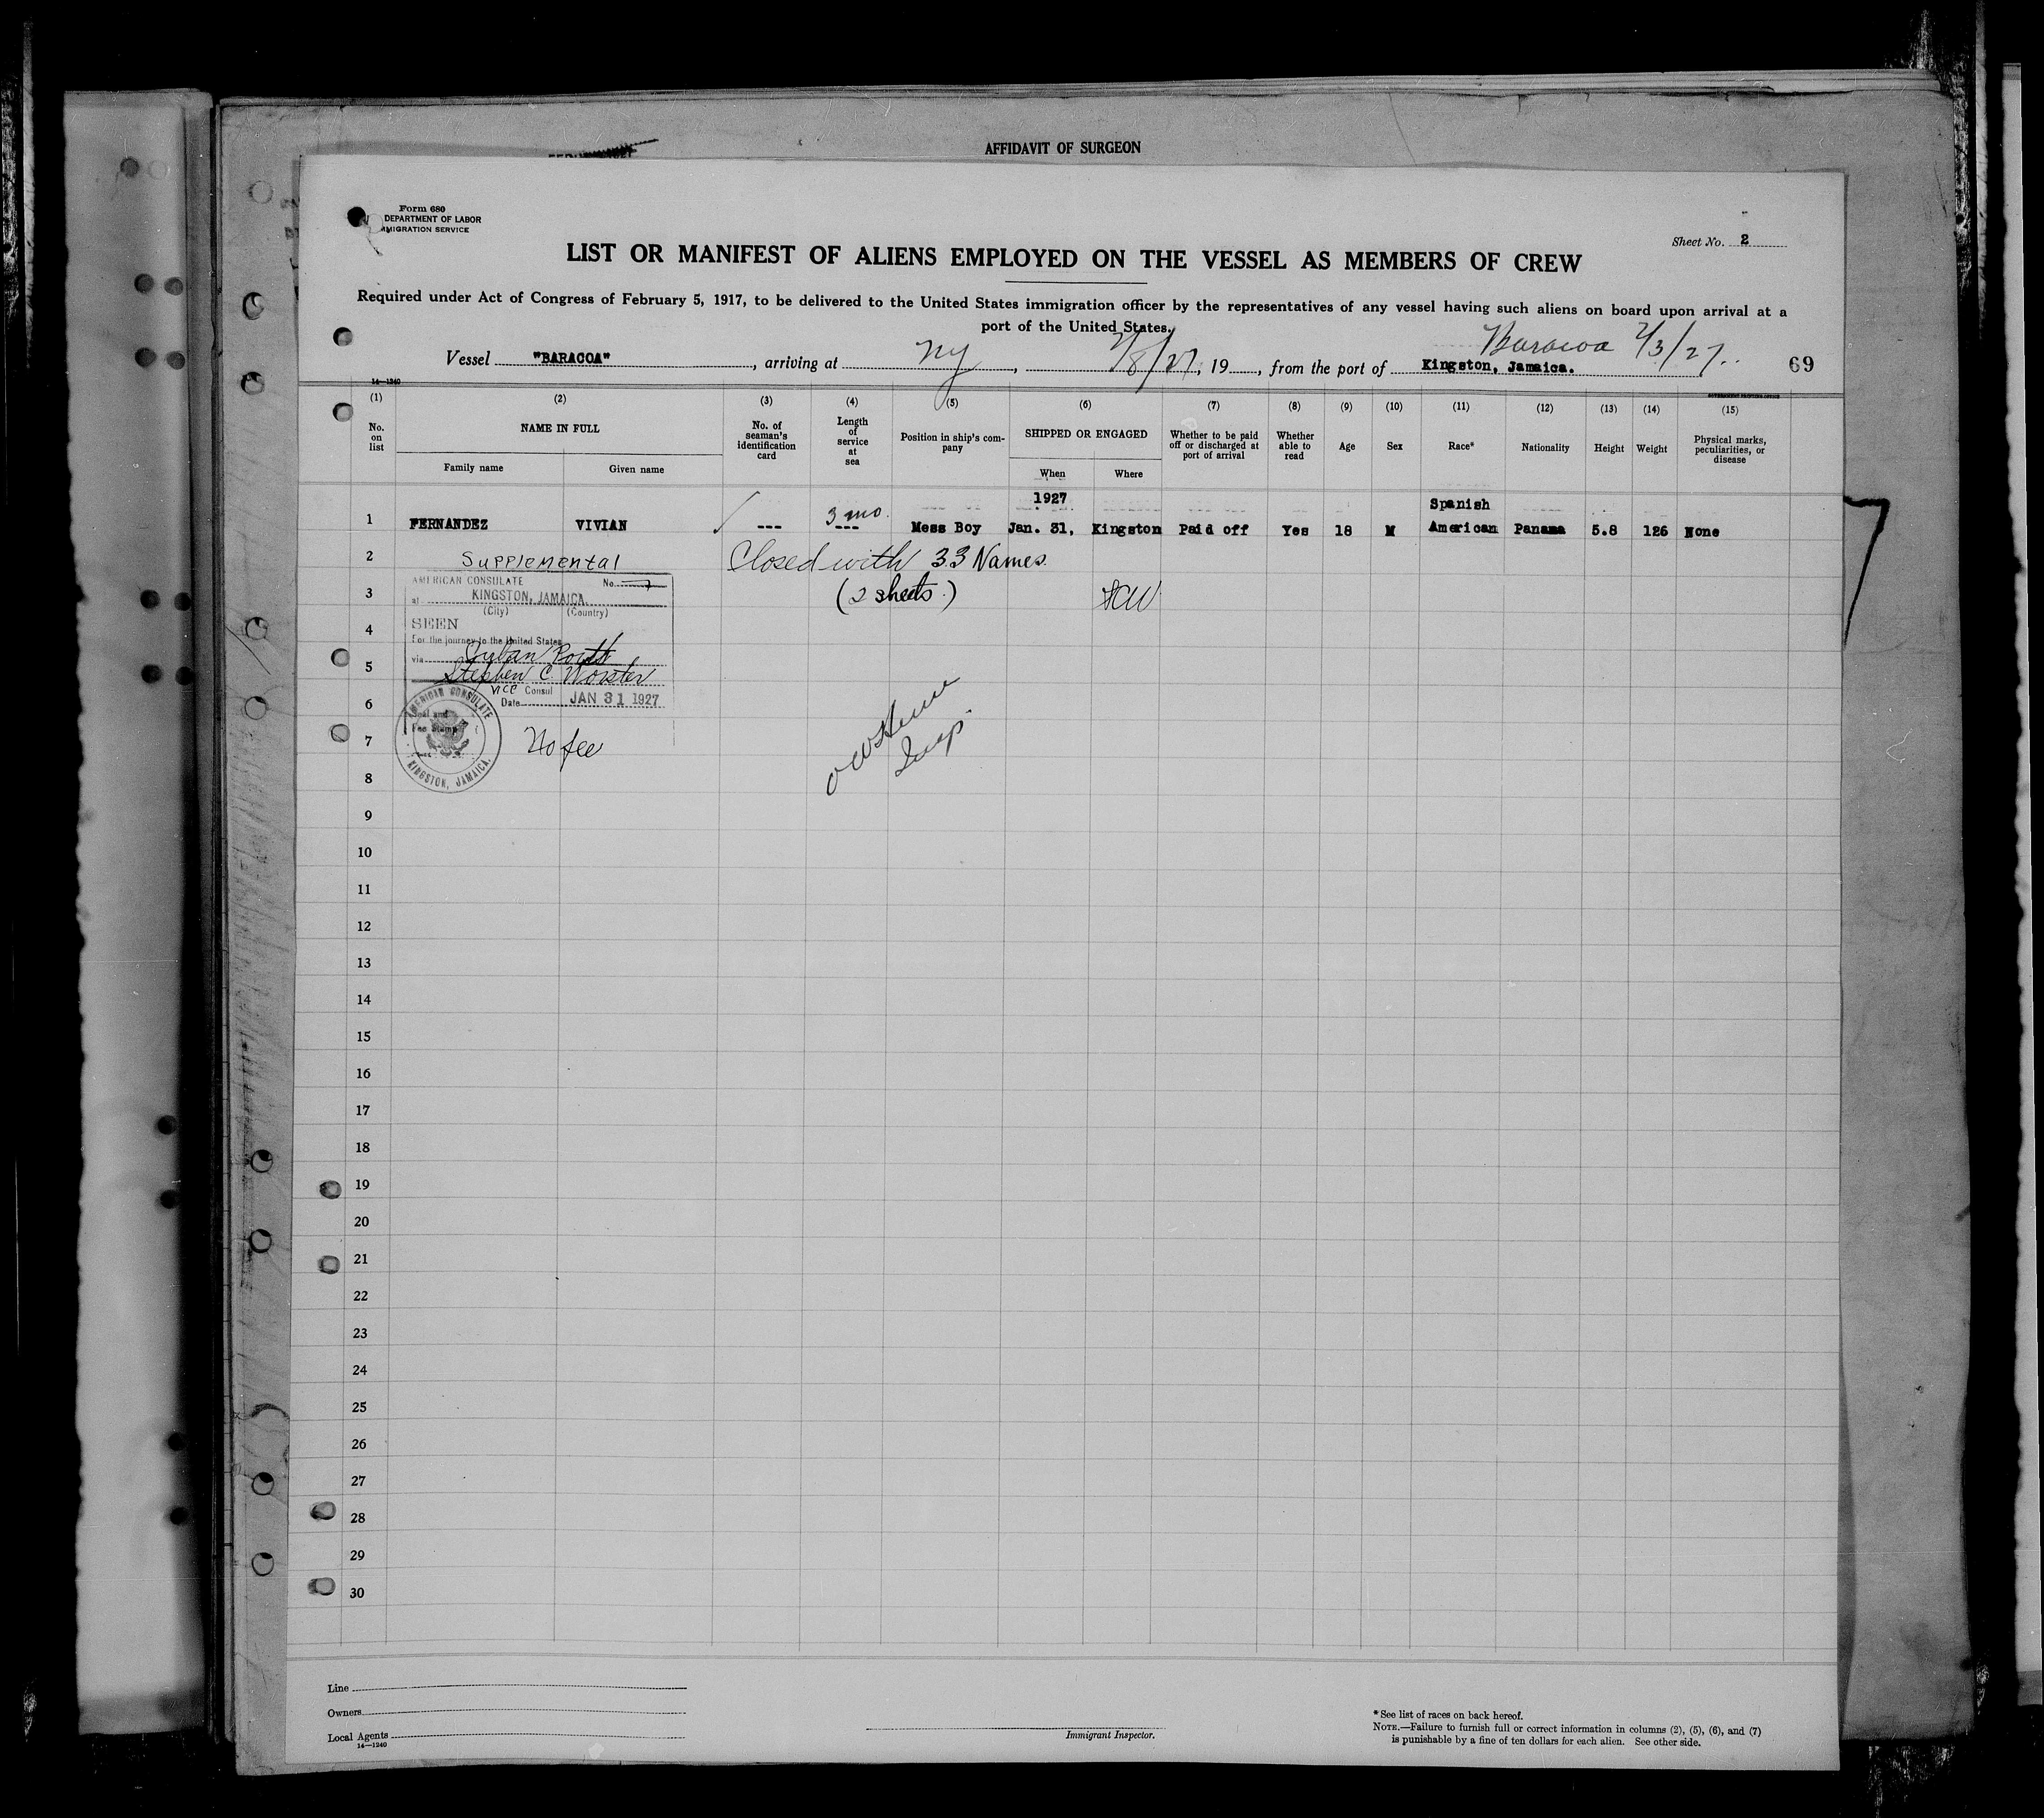 AFFIDAVIT OF SURGEON
Form 680
DEPARTMENT OF LABOR
MIGRATION SERVICE
Sheet No. 2
LIST OR MANIFEST OF ALIENS EMPLOYED ON THE VESSEL AS MEMBERS OF CREW
Required under Act of Congress of February 5, 1917, to be delivered to the United States immigration officer by the representatives of any vessel having such aliens on board upon arrival at a
port of the United States.
Baracoa 2/3/27.
Vessel "BARACOA", arriving at NY, 2/8/27, 19, from the port of Kingston, Jamaica. 69
14—1240
(1) (2) (3) (4) (5) (6) (7) (8) (9) (10) (11) (12) (13) (14) (15)
No. on list NAME IN FULL No. of seaman's identification card Length of service at sea Position in ship's company SHIPPED OR ENGAGED Whether to be paid off or discharged at port of arrival Whether able to read Age Sex Race* Nationality Height Weight Physical marks, peculiarities, or disease
Family name Given name When Where
1927 Spanish
1 FERNANDEZ VIVIAN --- 3 mo. --- Mess Boy Jan. 31, Kingston Paid off Yes 18 M American Panama 5.8 126 None
2 Supplemental Closed with 33 Names.
AMERICAN CONSULATE No.
3 at KINGSTON, JAMAICA. (2 sheets.) SCW
(City) (Country)
4 SEEN
For the journey to the United States
via Cuban Ports
5 Stephen C. Worster
Vice Consul
6 Date JAN 31 1927
AMERICAN CONSULATE
Seal and
Fee Stamp
KINGSTON, JAMAICA.
7 No fee
Insp.
8
9
10
11
12
13
14
15
16
17
18
19
20
21
22
23
24
25
26
27
28
29
30
Line
Owners
Local Agents
14—1240
Immigrant Inspector.
* See list of races on back hereof.
NOTE.—Failure to furnish full or correct information in columns (2), (5), (6), and (7)
is punishable by a fine of ten dollars for each alien. See other side.